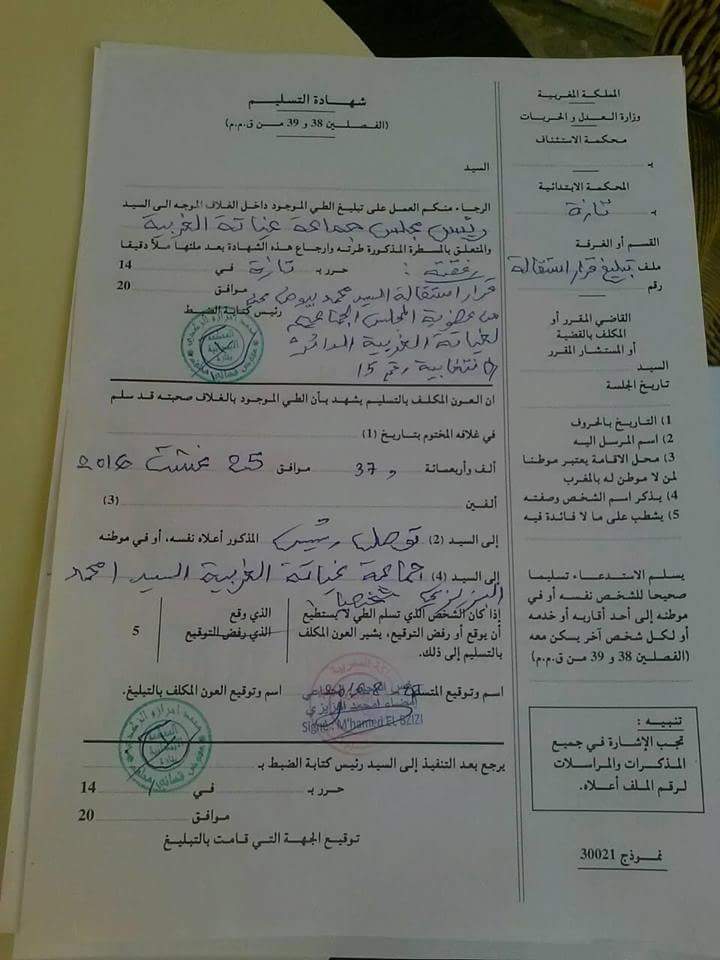 المملكة المغربية
وزارة العدل و الحريات
محكمة الاستئناف
بـ
المحكمة الابتدائية
بـ تازة
القسم أو الغرفة
ملف تبليغ قرار استقالة
رقم
القاضي المقرر أو
المكلف بالقضية
أو المستشار المقرر
السيد
تاريخ الجلسة
1) التاريخ بالحروف
2) اسم المرسل اليه
3) محل الاقامة يعتبر موطنا
لمن لا موطن له بالمغرب
4) يذكر اسم الشخص وصفته
5) يشطب على ما لا فائدة فيه
يسلم الاستدعاء تسليما
صحيحا للشخص نفسه أو في
موطنه إلى أحد أقاربه أو خدمه
أو لكل شخص آخر يسكن معه
(الفصلين 38 و 39 من ق.م.م)
تنبيه :
تجب الإشارة في جميع
المذكرات والمراسلات
لرقم الملف أعلاه.
نموذج 30021
شهادة التسليم
(الفصلين 38 و 39 من ق.م.م)
السيد
الرجاء منكم العمل على تبليغ الطي الموجود داخل الغلاف الموجه الى السيد
رئيس مجلس جماعة غياتة الغربية
والمتعلق بالمسطرة المذكورة طرته وارجاع هذه الشهادة بعد ملئها ملأ دقيقا
رفقته : حرر بـ تازة في 14
قرار استقالة السيد محمد موافق 20
من عضوية المجلس الجماعي رئيس كتابة الضبط
لغياتة الغربية الدائرة
الانتخابية رقم 15
ان العون المكلف بالتسليم يشهد بأن الطي الموجود بالغلاف صحبته قد سلم
في غلافه المختوم بتاريخ (1)
ألف وأربعمائة و 37 موافق 25 غشت 2016
ألفين (3)
إلى السيد (2) توصل رئيس المذكور أعلاه نفسه، أو في موطنه
إلى السيد (4) جماعة غياتة الغربية السيد امحمد
البزيزي شخصيا
إذا كان الشخص الذي تسلم الطي لا يستطيع
أن يوقع أو رفض التوقيع، يشير العون المكلف
بالتسليم إلى ذلك.
الذي وقع
الذي رفض التوقيع
5
اسم وتوقيع المتسلم اسم وتوقيع العون المكلف بالتبليغ.
Signé : M'hamed EL BZIZI
يرجع بعد التنفيذ إلى السيد رئيس كتابة الضبط بـ
حرر بـ في 14
موافق 20
توقيع الجهة التي قامت بالتبليغ